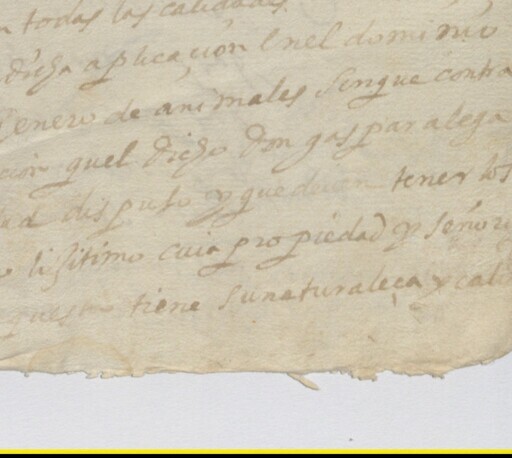 todas las calidades
dicha aplicación en el dominio
genero de animales sin que contra
cion quel dicho don gaspar alega
ud dispuso y que deven tener los
lixitimo cuia propiedad y señori
questo tiene su naturaleça y cali